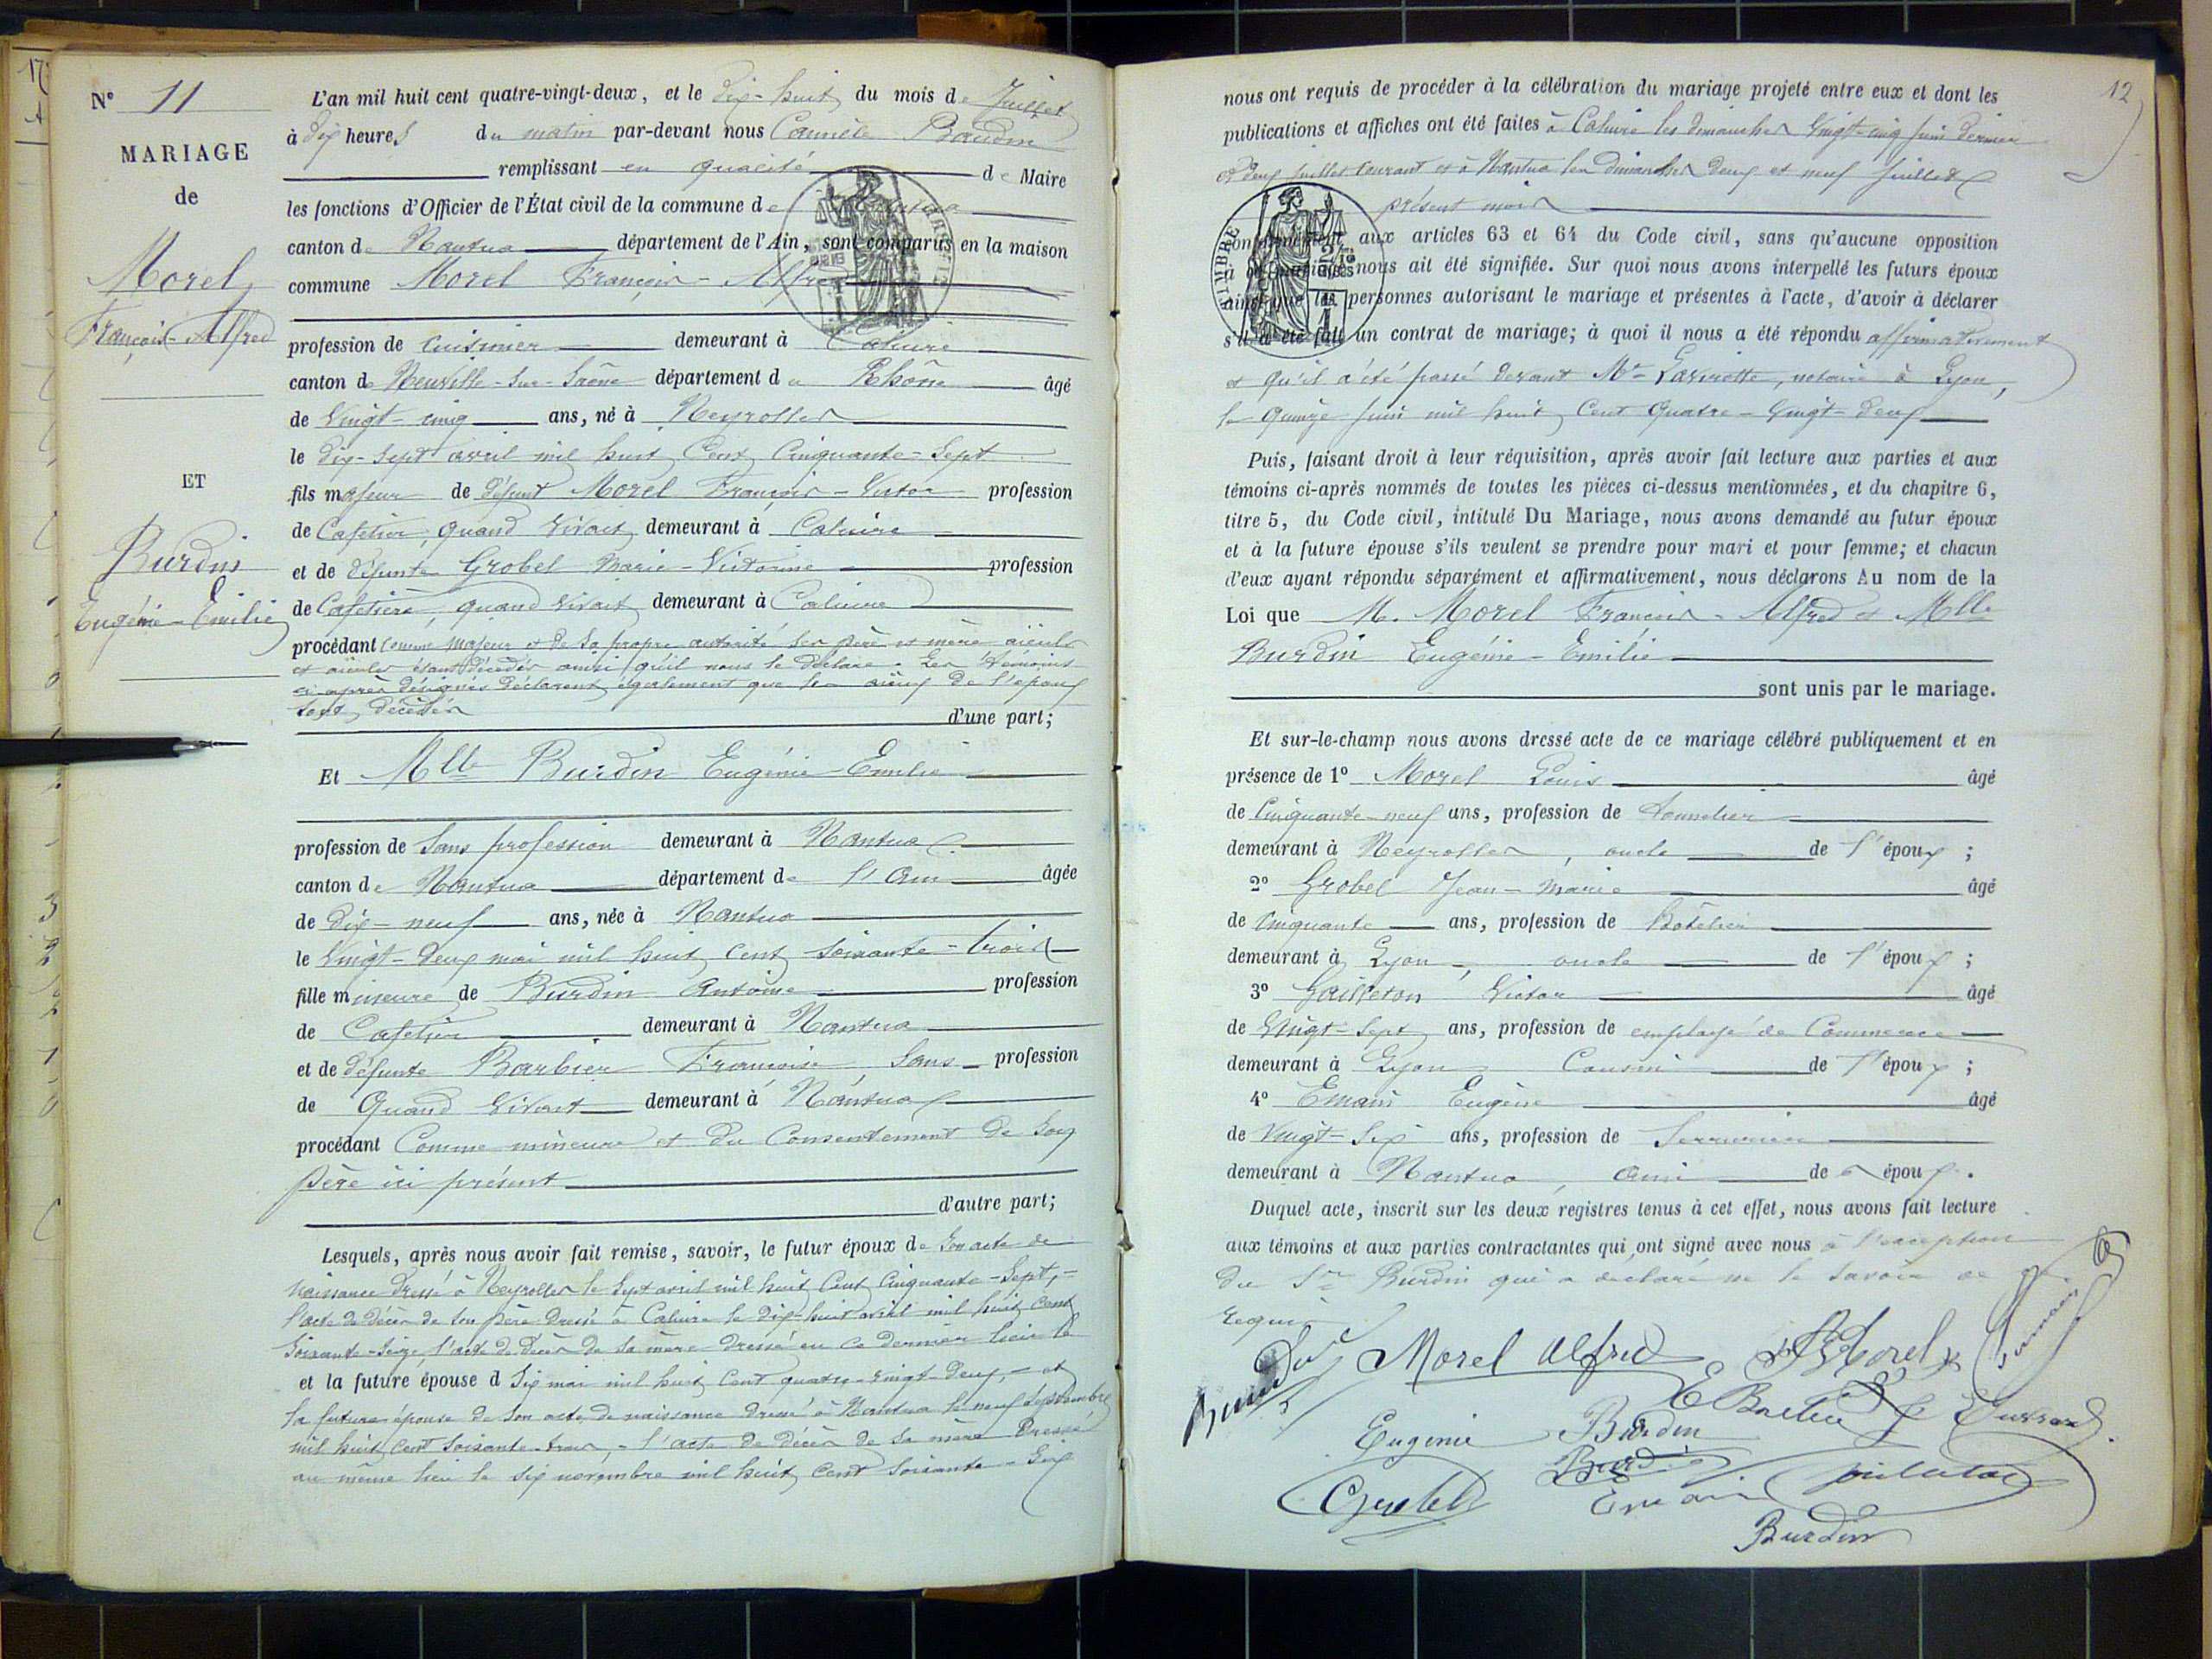 N° 11
MARIAGE
de
Morel
François-Alfred
ET
Burdin
Eugénie-Emilie
L'an mil huit cent quatre-vingt-deux, et le dix-huit du mois de Juillet
à dix heures du matin par-devant nous Baudin
remplissant en qualité de Maire
les fonctions d'Officier de l'État civil de la commune de Nantua
canton de Nantua département de l'Ain, sont comparus en la maison
commune Morel François-Alfred
profession de cuisinier demeurant à Caluire
canton de Neuville-sur-Saône département du Rhône âgé
de vingt-cinq ans, né à Neyrolles
le dix-sept avril mil huit cent cinquante-sept
fils majeur de défunt Morel François-Victor profession
de Cafetier, quand vivait demeurant à Caluire
et de défunte Grobel Marie-Victorine profession
de Cafetière, quand vivait demeurant à Caluire
procédant comme majeur et de sa propre autorité ses père et mère aïeuls
et aïeules étant décédés ainsi qu'il nous le déclare. Les témoins
ci-après désignés déclarent également que les aïeux de l'époux
sont décédés
d'une part;
Et Mlle Burdin Eugénie-Emilie
profession de sans profession demeurant à Nantua
canton de Nantua département de l'Ain âgée
de dix-neuf ans, née à Nantua
le vingt-deux mai mil huit cent soixante-trois
fille mineure de Burdin Antoine profession
de Cafetier demeurant à Nantua
et de défunte Barbier Françoise sans profession
de quand vivait demeurant à Nantua
procédant comme mineure et du consentement de son
père ici présent
d'autre part;
Lesquels, après nous avoir fait remise, savoir, le futur époux de son acte de
naissance dressé à Neyrolles le sept avril mil huit cent cinquante-sept,
l'acte de décès de son père dressé à Caluire le dix-huit avril mil huit cent
soixante-seize, l'acte de décès de sa mère dressé en ce dernier lieu le
et la future épouse d six mai mil huit cent quatre-vingt-deux, et
la future épouse de son acte de naissance dressé à Nantua le neuf septembre
mil huit cent soixante-trois, l'acte de décès de sa mère dressé
au même lieu le six novembre mil huit cent soixante-six
12
nous ont requis de procéder à la célébration du mariage projeté entre eux et dont les
publications et affiches ont été faites à Caluire les dimanches vingt-cinq juin dernier
et deux juillet courant et à Nantua les dimanches deux et neuf juillet
présent mois
conformément aux articles 63 et 64 du Code civil, sans qu'aucune opposition
à ce mariage nous ait été signifiée. Sur quoi nous avons interpellé les futurs époux
ainsi que les personnes autorisant le mariage et présentes à l'acte, d'avoir à déclarer
s'il a été fait un contrat de mariage; à quoi il nous a été répondu affirmativement
et qu'il a été passé devant Me Lavirotte, notaire à Lyon,
le quinze juin mil huit cent quatre-vingt-deux
Puis, faisant droit à leur réquisition, après avoir fait lecture aux parties et aux
témoins ci-après nommés de toutes les pièces ci-dessus mentionnées, et du chapitre 6,
titre 5, du Code civil, intitulé Du Mariage, nous avons demandé au futur époux
et à la future épouse s'ils veulent se prendre pour mari et pour femme; et chacun
d'eux ayant répondu séparément et affirmativement, nous déclarons Au nom de la
Loi que M. Morel François-Alfred et Mlle
Burdin Eugénie-Emilie
sont unis par le mariage.
Et sur-le-champ nous avons dressé acte de ce mariage célébré publiquement et en
présence de 1° Morel Louis âgé
de cinquante-neuf ans, profession de tonnelier
demeurant à Neyrolles, oncle de l'époux;
2° Grobel Jean-Marie âgé
de cinquante ans, profession de hôtelier
demeurant à Lyon, oncle de l'époux;
3° Gailleton Victor âgé
de vingt-sept ans, profession de employé de Commerce
demeurant à Lyon Cousin de l'époux;
4° Emain Eugène âgé
de vingt-six ans, profession de Serrurier
demeurant à Nantua, ami de époux.
Duquel acte, inscrit sur les deux registres tenus à cet effet, nous avons fait lecture
aux témoins et aux parties contractantes qui ont signé avec nous à l'exception
du Sr Burdin qui a déclaré ne le savoir de ce
requis
Morel Alfred Morel
Eugenie Burdin
Grobel Emain
Burdin
TIMBRE